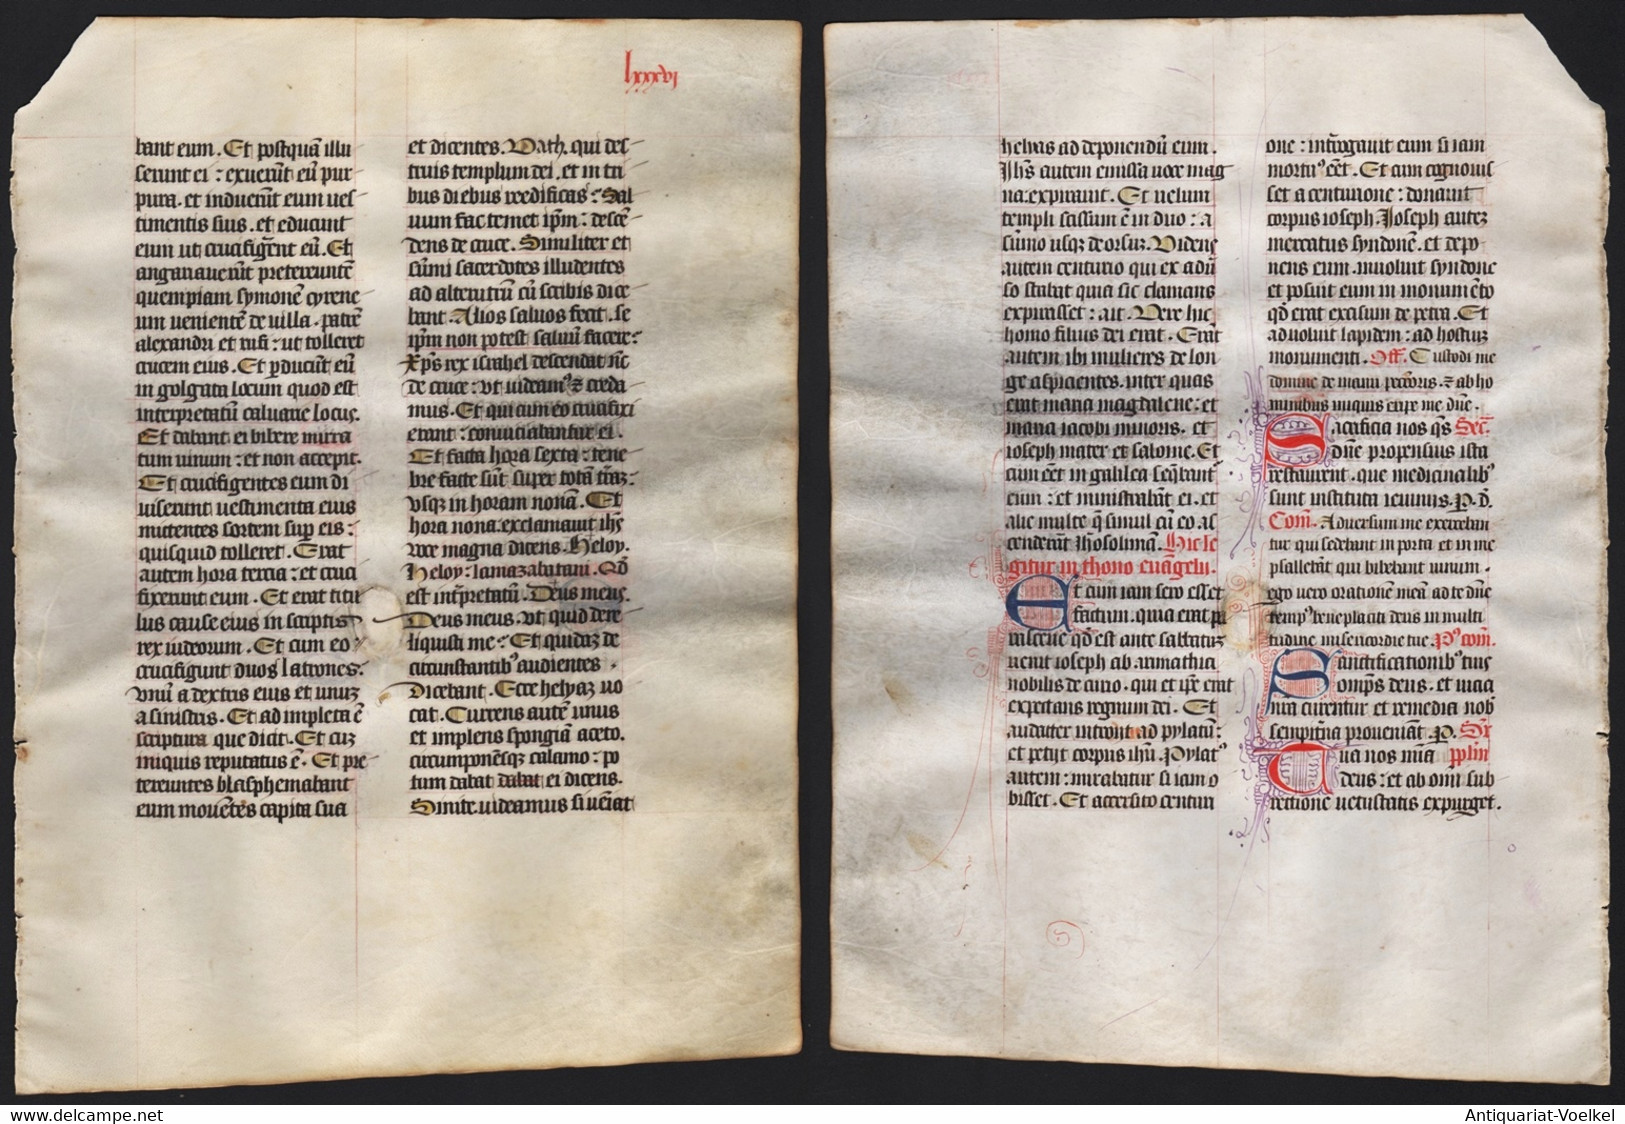 lxxxvi
bant eum. Et postquā illu
serunt ei : exuerūt eū pur
pura. et induerūt eum ves
timentis suis. et educunt
eum ut crucifigͬent eū. Et
angariaverūt pretereuntē
quempiam symonē cyrene
um venientē de villa. patrē
alexandri et rufi : ut tolleret
crucem eius. Et ꝑducūt eū
in golgata locum quod est
interpretatū calvarie locus.
Et dabant ei bibere mirra
tum vinum : et non accepit.
Et crucifigentes eum di
viserunt vestimenta eius
mittentes sortem suꝑ eis :
quisquid tolleret. Erat
autem hora tercia : et cruci
fixerunt eum. Et erat titu
lus cause eius in scͥptis
rex iudeorum. Et cum eo
crucifigunt duos latrones.
Vnū a dextris eius et unuꝫ
a sinistris. Et adimpleta ē
scriptura que dicit. Et cuꝫ
iniquis reputatus ē. Et pre
tereuntes blasphemabant
eum movētes capita sua
et dicentes. Vath. qui des
truis templum dei. et in tri
bus diebus reedificas : Sal
vum fac temet ip̄m : descē
dens de cruce. Similiter et
sūmi sacerdotes illudentes
ad alterutrū cū scribis dice
bant. Alios salvos fecit. se
ip̄m non potest salvū facere :
Xp̄s rex israhel descendat nūc
de cruce : ut videamꝰ ⁊ creda
mus. Et qui cum eo crucifixi
erant : conviciabantur ei.
Et facta hora sexta : tene
bre facte sūt super totā trāꝫ
usqꝫ in horam nonā. Et
hora nona : exclamavit ih̄s
voce magna dicens. Heloy.
Heloy : lamazabatani. Qđ
est int͛pretatū. Deus meus.
Deus meus. ut quid dere
liquisti me : Et quidaꝫ de
circumstantibꝰ audientes .
Dicebant. Ecce helyaꝫ vo
cat. Currens autē unus
et implens spongiā aceto.
circumponēsqꝫ calamo : po
tum dabat dabat ei dicens.
Sinite videamus si veniat
helyas ad deponendū eum.
Ih̄s autem emissa voce mag
na. expiravit. Et velum
templi scissum ē in duo : a
sūmo usqꝫ deorsuꝫ. Videns
autem centurio qui ex adūͥ
so stabat quia sic clamans
expirasset : ait. Vere hic
homo filius dei erat. Erāt
autem ibi mulieres de lon
ge aspicientes. inter quas
erat maria magdalene : et
maria iacobi minoris. et
ioseph mater et salome. Et
cum eēt in galilea seq̄bant͛
eum : et ministrabāt ei. et
alie multe q̄ simul cū eo as
cenderāt Iherosolimā. Hic le
gitur in thono evāgelii.
Et cum iam sero esset
factum. quia erat pa
rasceve qđ est ante sabbatuꝫ
venit ioseph ab arimathia
nobilis decurio. qui et ip̄e erat
expectans regnum dei. Et
audacter introijt ad pylatū :
et petijt corpus ih̄u. Pylatꝰ
autem : mirabatur si iam o
bisset. Et accersito centuri
one : int͛rogavit eum si iam
mortuꝰ eēt. Et cum cognovis
set a centurione : donavit
corpus ioseph. Ioseph auteꝫ
mercatus syndonē. et depo
nens eum. involvit syndone
et posuit eum in monumēto
qđ erat excisum de petra. Et
advolvit lapidem : ad hostiuꝫ
monumenti. Off. Custodi me
domine de manu peccōris. ⁊ ab ho
minibus iniquis eripe me dn̄e.
Sacrificia nos q̄s Secr̄.
dn̄e propensius ista
restaurent. que medicinalibꝰ
sunt instituta ieiuniis. P. d.
Com̄. Adversum me exerceban
tur qui sedebant in porta et in me
psallebāt qui bibebant vinum.
ego vero orationem meā ad te dn̄e
tempꝰ beneplaciti deus in multi
tudine misericordie tue. Pꝰ com̄.
Sanctificationibꝰ tuis
omp̄s deus. et vicia
nr̄a curentur et remedia nob̄
sempit͛na proveniāt. P. Sr̄
Tua nos mīa pplm̄
deus : et ab omi sub
reptione vetustatis expurget.
www.delcampe.net
Antiquariat-Voelkel